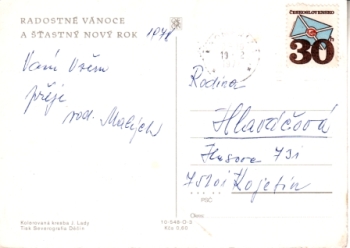 RADOSTNÉ VÁNOCE
A ŠŤASTNÝ NOVÝ ROK
1978
Vám Všem
přeje
rod.
ČESKOSLOVENSKO
30
Rodina
Husova 731
75201 Kojetín
PSČ
Okres
Kolorovaná kresba J. Lady
Tisk Severografia Děčín
Kčs 0,60